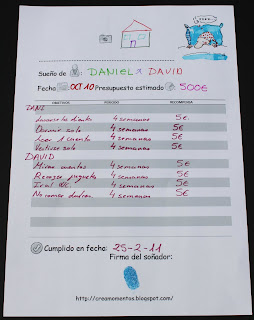 Sueño de : DANIEL Y DAVID
Fecha OCT 10 Presupuesto estimado 500€
OBJETIVOS PERIODO RECOMPENSA
DANI
Lavarse los dientes 4 semanas 5€
Dormir solo 4 semanas 5€
Leer 1 cuento 4 semanas 5€
Vestirse solo 4 semanas 5€
DAVID
Mirar cuentos 4 semanas 5€
Recoger juguetes 4 semanas 5€
Ir al WC 4 semanas 5€
No romper 4 semanas 5€
Cumplido en fecha: 25-2-11
Firma del soñador:
http://creamomentos.blogspot.com/